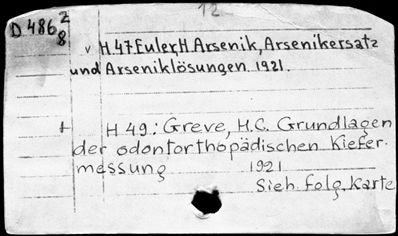 12
D 486 2/8
v H.47. Euler, H. Arsenik, Arsenikersatz
und Arseniklösungen. 1921.
+ H 49: Greve, H.C. Grundlagen
der odontorthopädischen Kiefer-
messung 1921
Sieh. folg. Karte